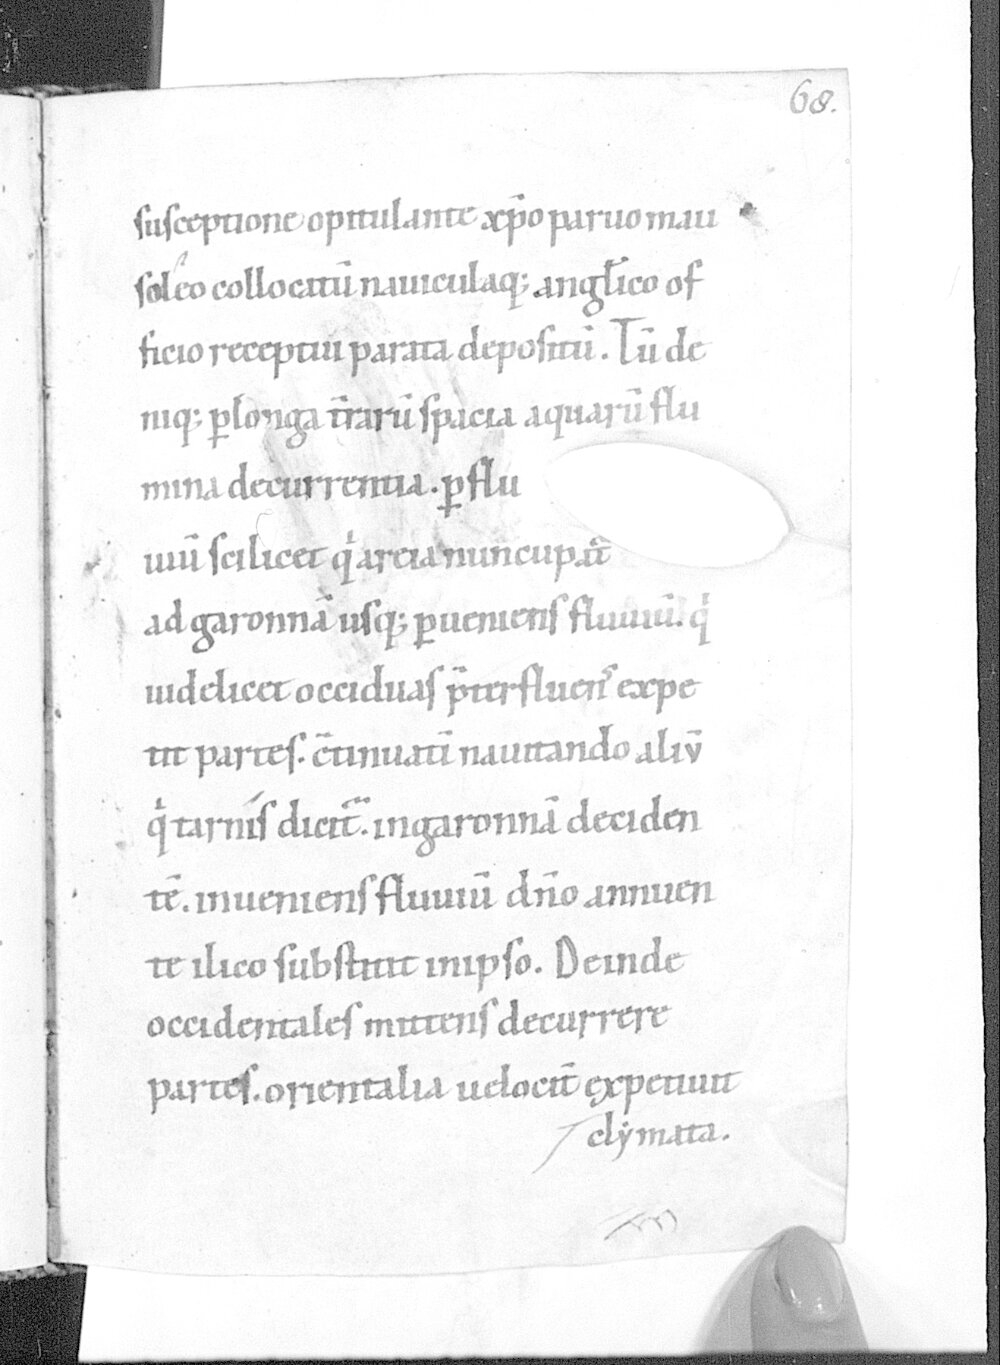 68.
susceptione opitulante xp̄o paruo mau
soleo collocatū nauiculaq; angl̄ico of
ficio receptui parata depositū. Tū de
niq; ꝑ longa t̄rarū spacia aquarū flu
mina decurrentia. ꝑ flu
uiū scilicet qͥ areia nuncupat̄
ad garonnā usq; ꝑueniens fluuiū. qͥ
uidelicet occiduas p̄terfluens expe
tit partes. c̄tinuatī nauitando aliū
qͥ tarnis dicit̄. in garonnā deciden
tē. inueniens fluuiū dn̄o annuen
te ilico substitit in ipso. Deinde
occidentales mittens decurrere
partes. orientalia uelocit̄ expetiuit
clẏmata.